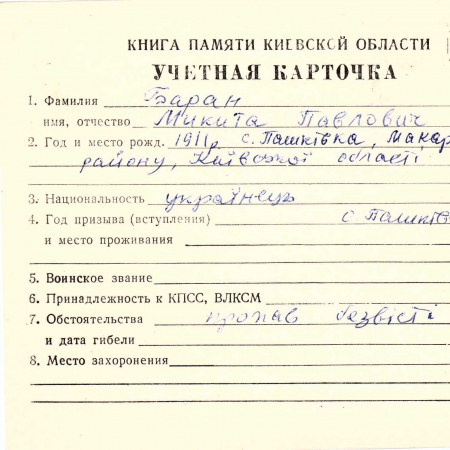 КНИГА ПАМЯТИ КИЕВСКОЙ ОБЛАСТИ
УЧЕТНАЯ КАРТОЧКА
1. Фамилия Баран
имя, отчество Микита Павлович
2. Год и место рожд. 1911р с. Пашківка, Макар
району, Київської області
3. Национальность українець
4. Год призыва (вступления) с. Пашків
и место проживания
5. Воинское звание
6. Принадлежность к КПСС, ВЛКСМ
7. Обстоятельства пропав безвісті
и дата гибели
8. Место захоронения